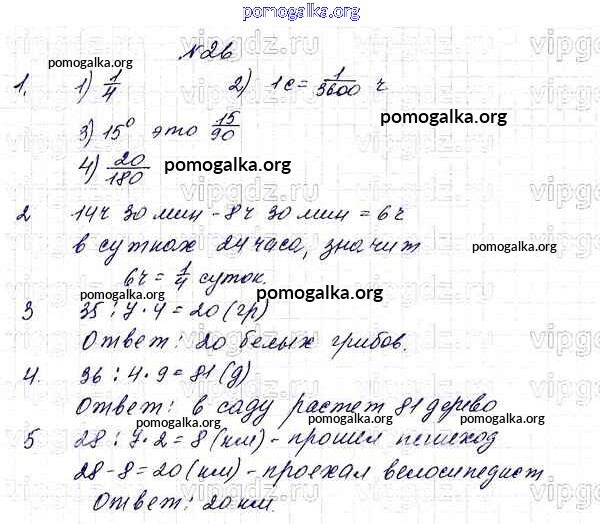 pomogalka.org
№26
pomogalka.org
1. 1) 1/4 2) 1с = 1/3600 ч
pomogalka.org
3) 15° это 15/90
4) 20/180 pomogalka.org
2 14ч 30 мин - 8ч 30 мин = 6ч
в сутках 24 часа, значит pomogalka.org
6ч = 1/4 суток.
pomogalka.org
3 35 : 7 · 4 = 20 (гр)
Ответ: 20 белых грибов.
pomogalka.org
4. 36 : 4 · 9 = 81 (д)
Ответ: в саду растет 81 дерево
pomogalka.org pomogalka.org
5 28 : 7 · 2 = 8 (км) - прошел пешеход
28 - 8 = 20 (км) - проехал велосипедист
pomogalka.org
Ответ: 20 км.